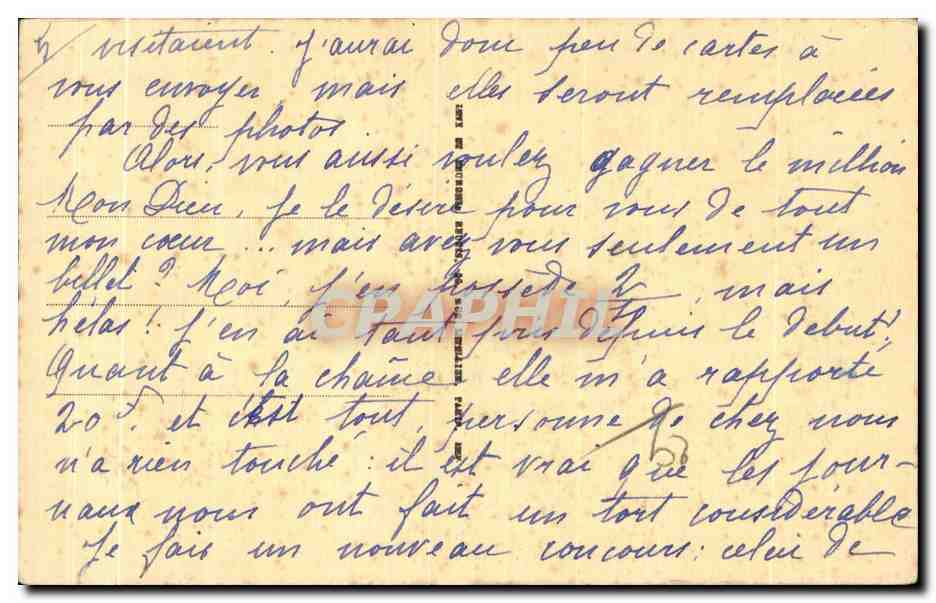 visitaient. J'aurai donc peu de cartes à
vous envoyer mais elles seront remplacées
par des photos.
Alors, vous aussi voulez gagner le million
Mon Dieu, je le désire pour vous de tout
mon cœur ... mais avez-vous seulement un
billet? Moi, j'en possède 2, mais
hélas! j'en ai tant pris depuis le début!
Quant à la chaîne elle m'a rapporté
20f. et c'est tout, personne de chez nous
n'a rien touché: il est vrai que les jour-
naux nous ont fait un tort considérable
Je fais un nouveau concours: celui de
CRAPHIL
50